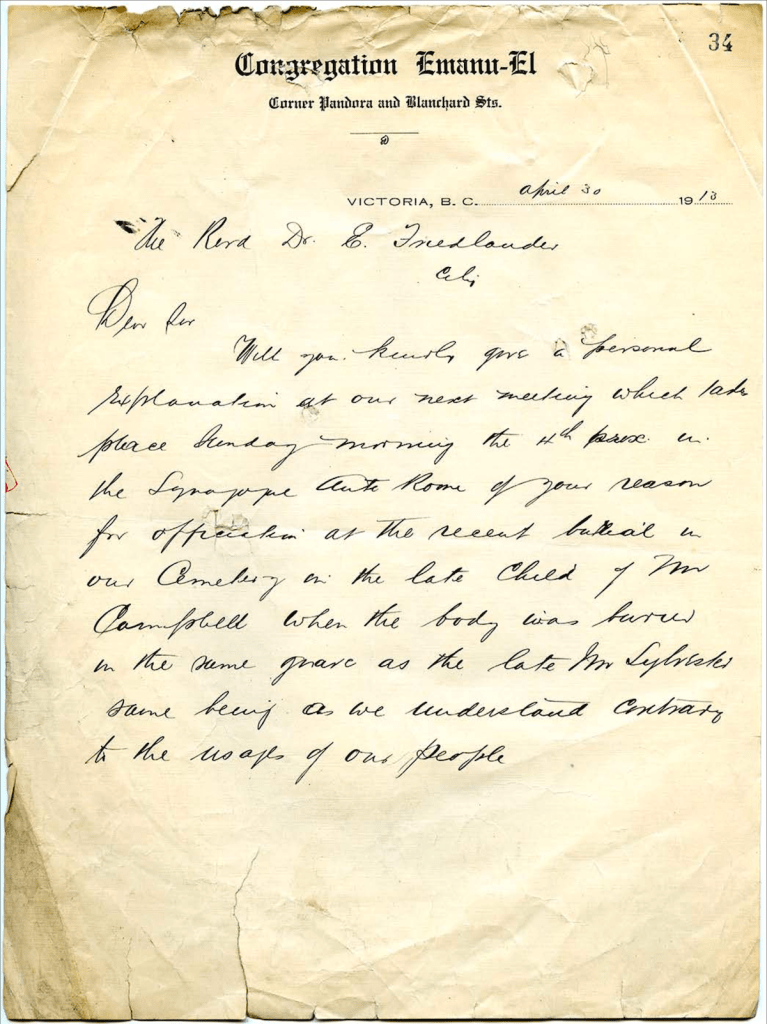 34
Congregation Emanu-El
Corner Pandora and Blanchard Sts.
VICTORIA, B. C. april 30 1913
The Revd Dr. E. Friedlander
City
Dear Sir
Will you kindly give a personal
explanation at our next meeting which takes
place Sunday morning the 4th prox. in
the Synagogue Ante Room of your reason
for officiating at the recent burial in
our Cemetery on the late Child of Mr
Campbell when the body was buried
in the same grave as the late Mr Sylvester
same being as we understand contrary
to the usages of our people